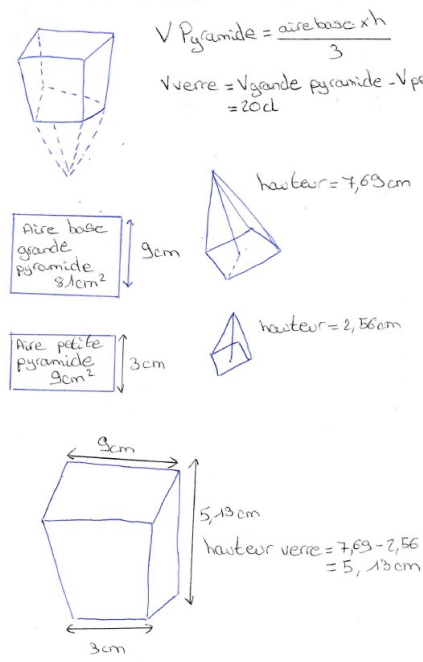 V Pyramide = aire base x h
3
V verre = V grande pyramide - V pe
= 20cl
hauteur = 7,69cm
Aire base
grande
pyramide
81cm²
9cm
hauteur = 2,56cm
Aire petite
pyramide
9cm²
3cm
9cm
5,13cm
hauteur verre = 7,69 - 2,56
= 5,13cm
3cm